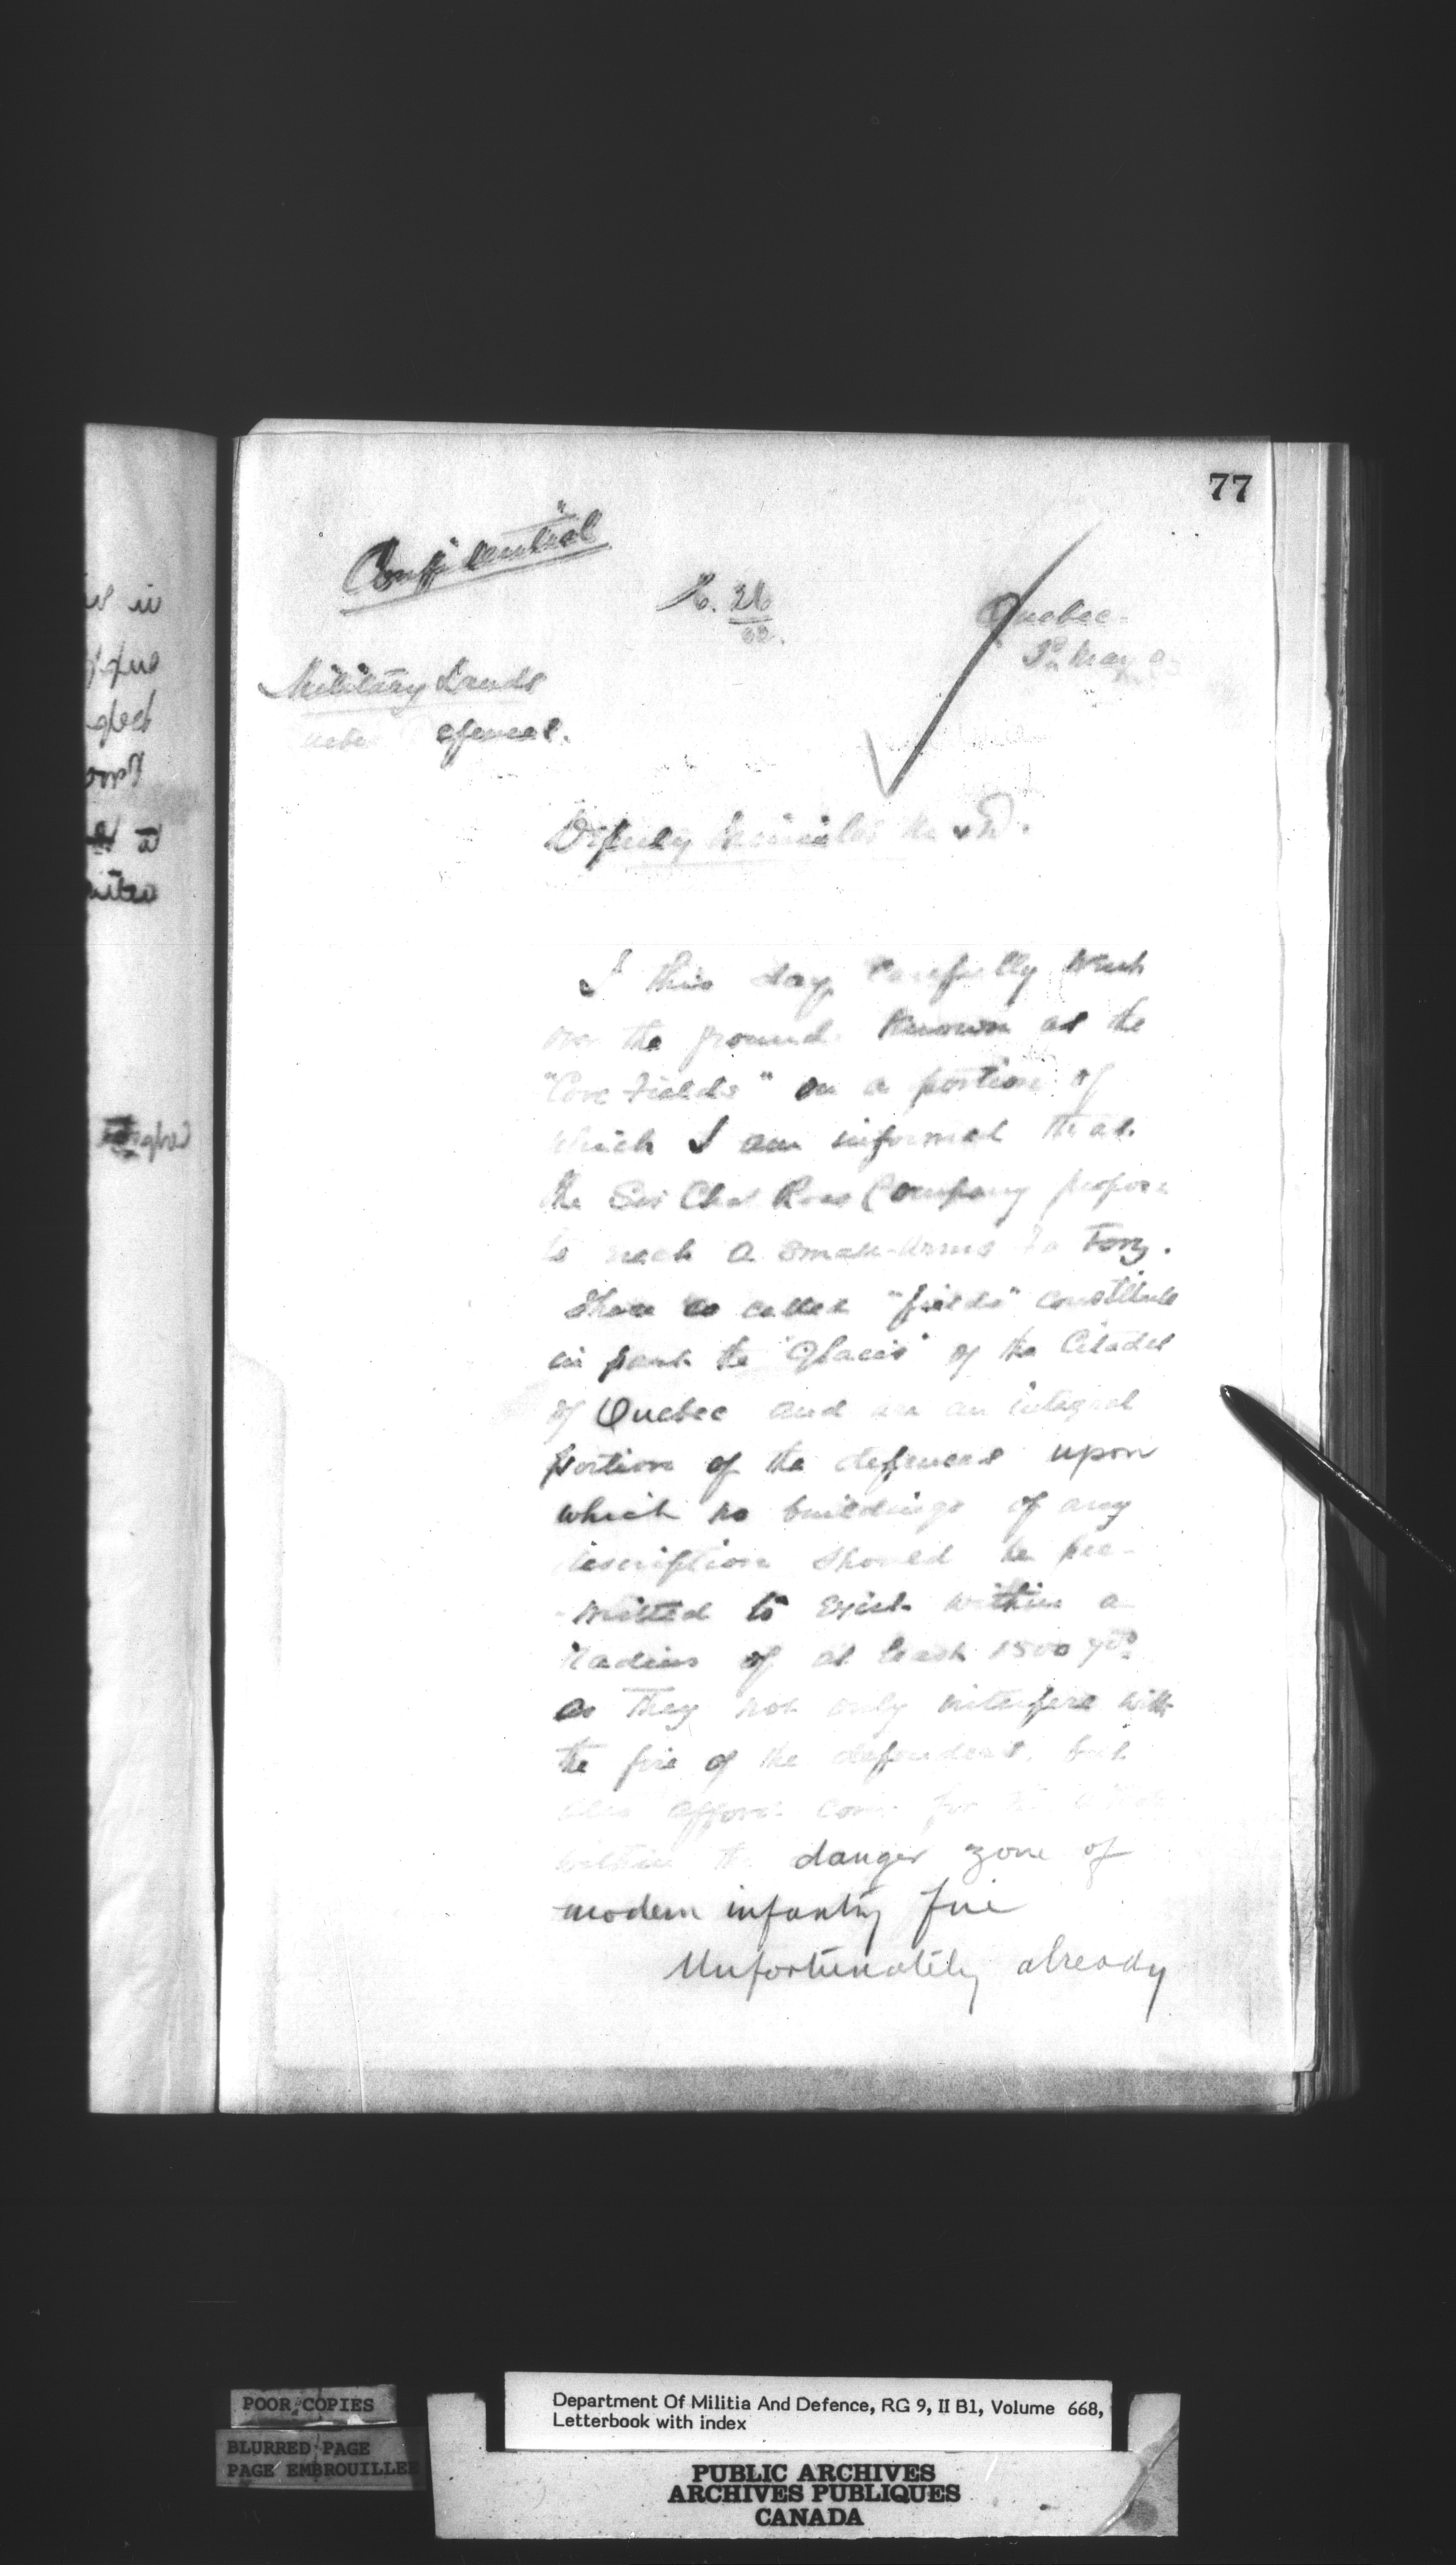 77
Confidential
Quebec.
Military Lands
efences.
Deputy Minister M & D.
I this day carefully went
over the ground known as the
"Cove Fields" on a portion of
which I am informed that
the Sir Chas Ross Company propose
to erect a Small-Arms Factory.
These so called "fields" constitute
in part the "Glacis" of the Citadel
of Quebec and are an integral
portion of the defences upon
which no buildings of any
description should be per-
-mitted to exist within a
radius of at least 1500 yds
as they not only interfere with
the fire of the defenders, but
also afford cover for the
within the danger zone of
modern infantry fire
Unfortunately already
POOR COPIES
BLURRED PAGE
PAGE EMBROUILLEE
Department Of Militia And Defence, RG 9, II B1, Volume 668,
Letterbook with index
PUBLIC ARCHIVES
ARCHIVES PUBLIQUES
CANADA